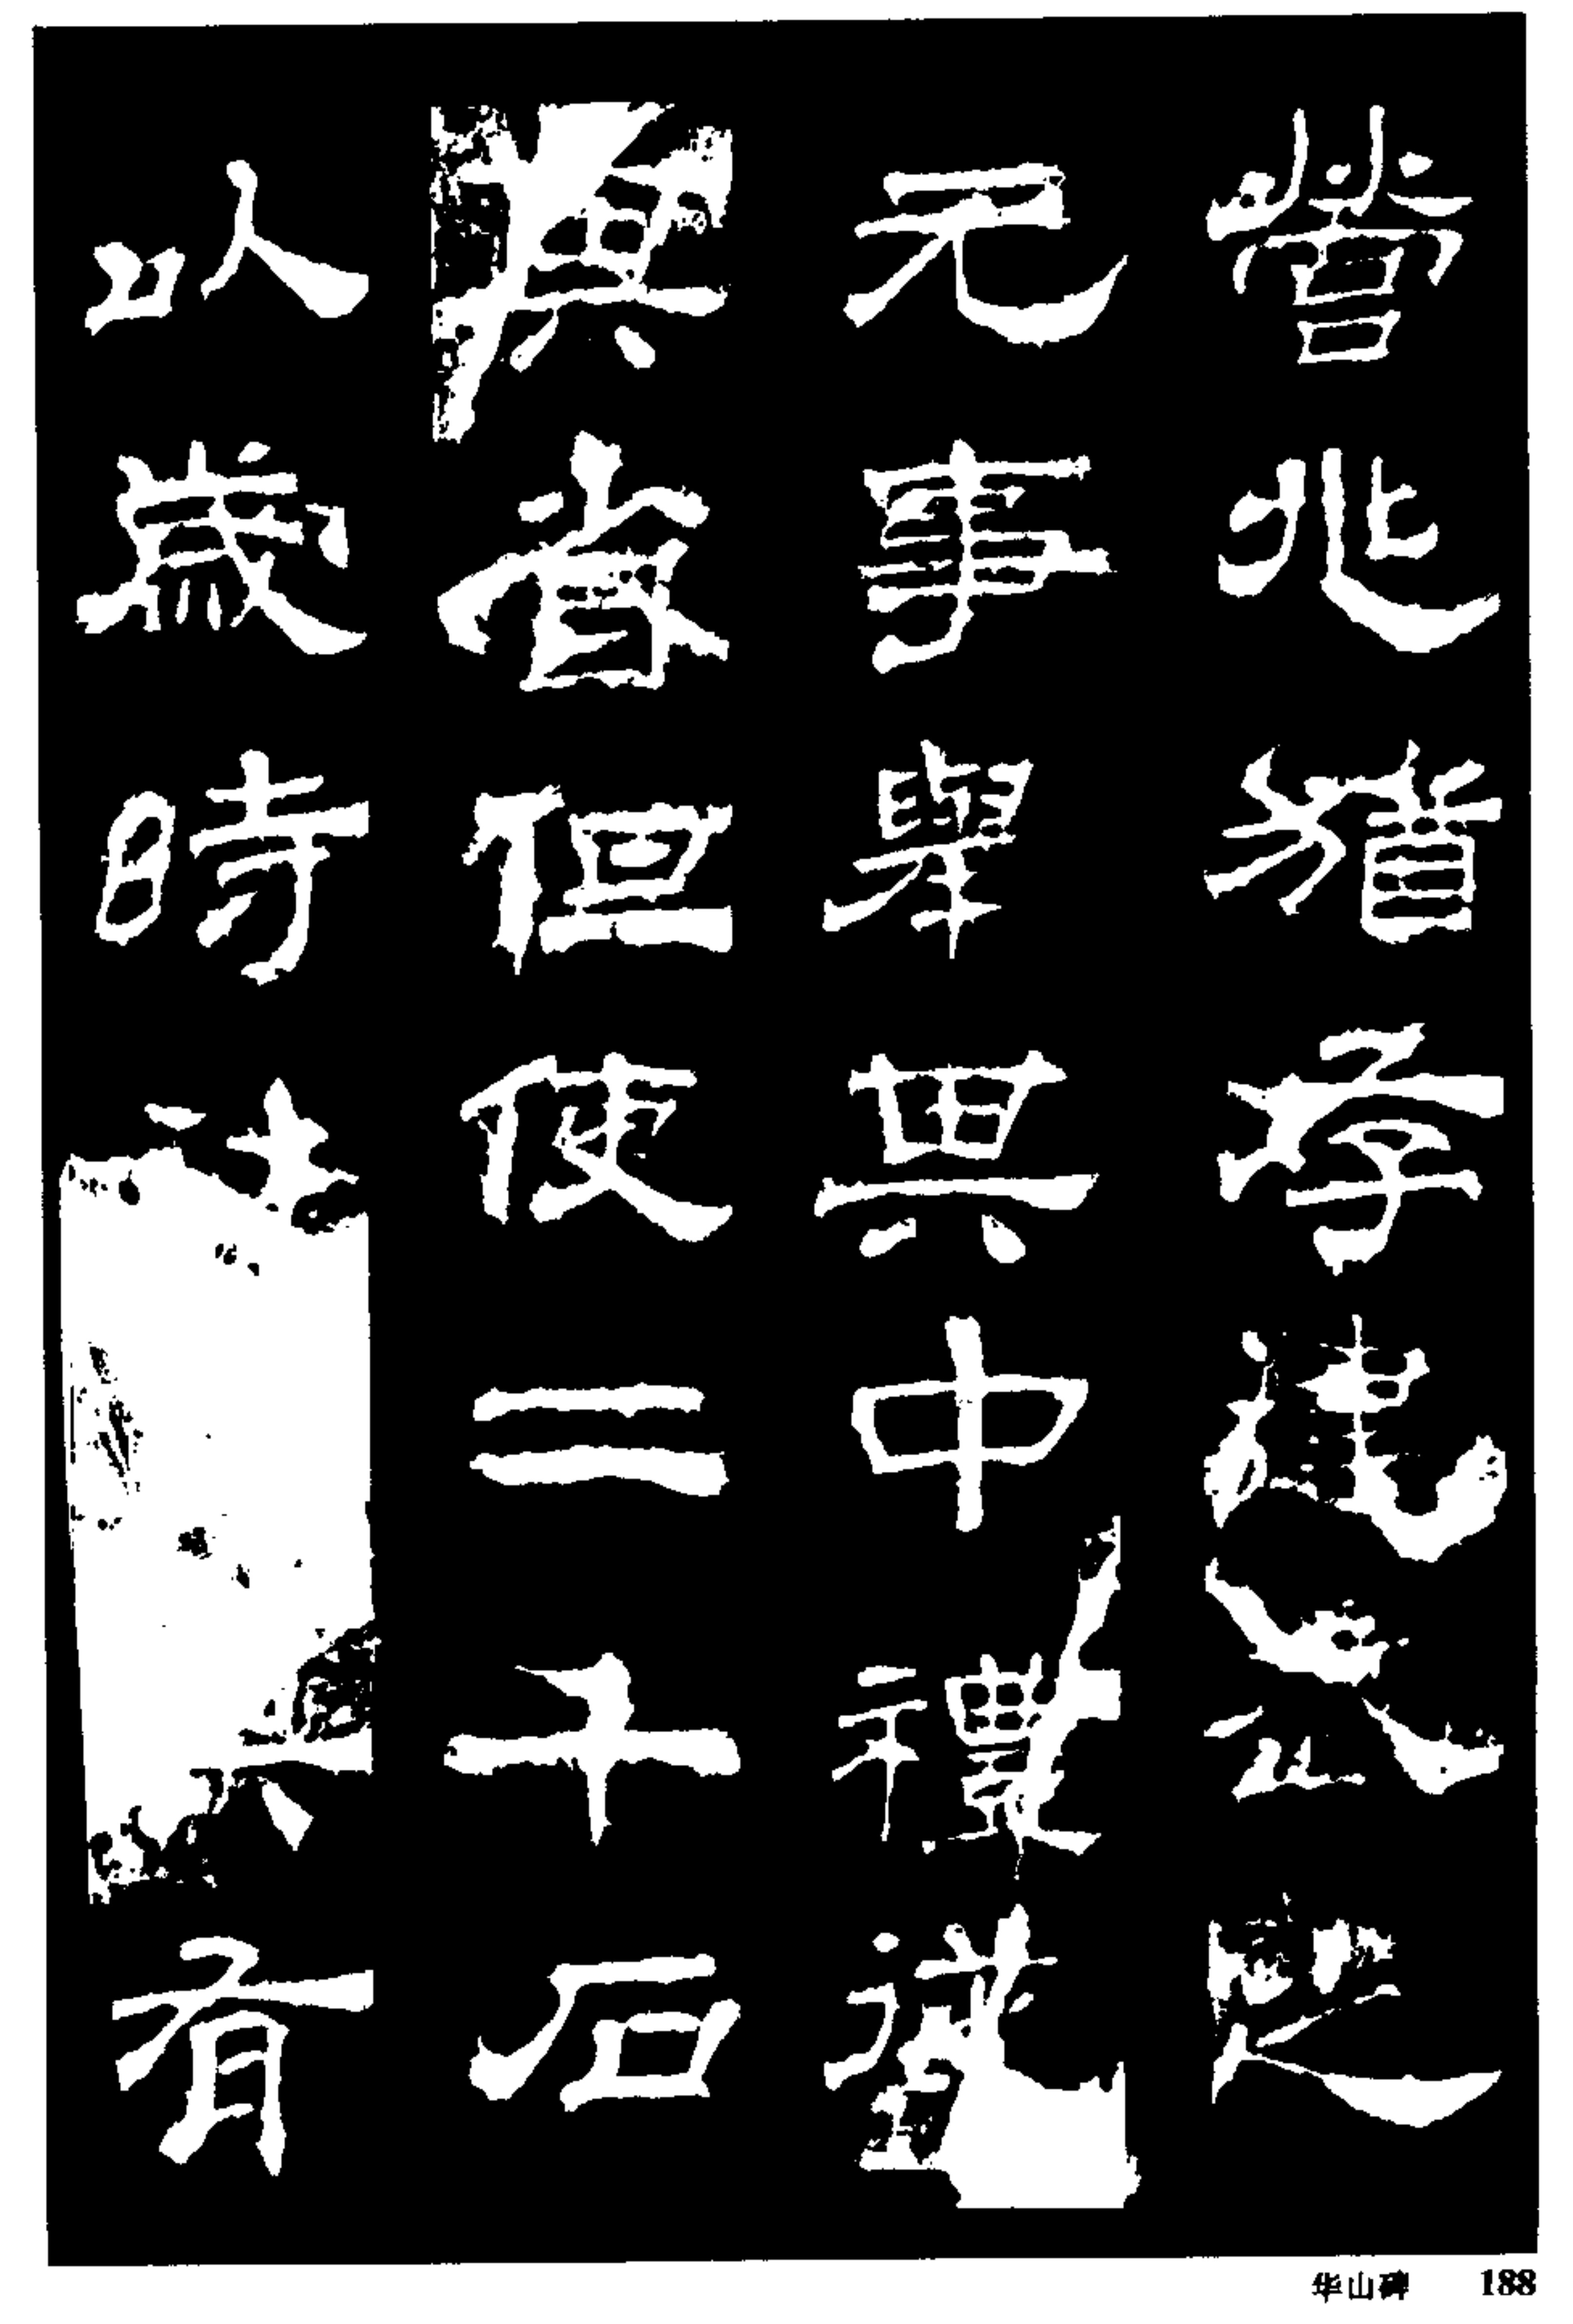 營兆猶存建武之
元事舉其中禮從
其省但使二千石
以歲時其有
华山碑 188